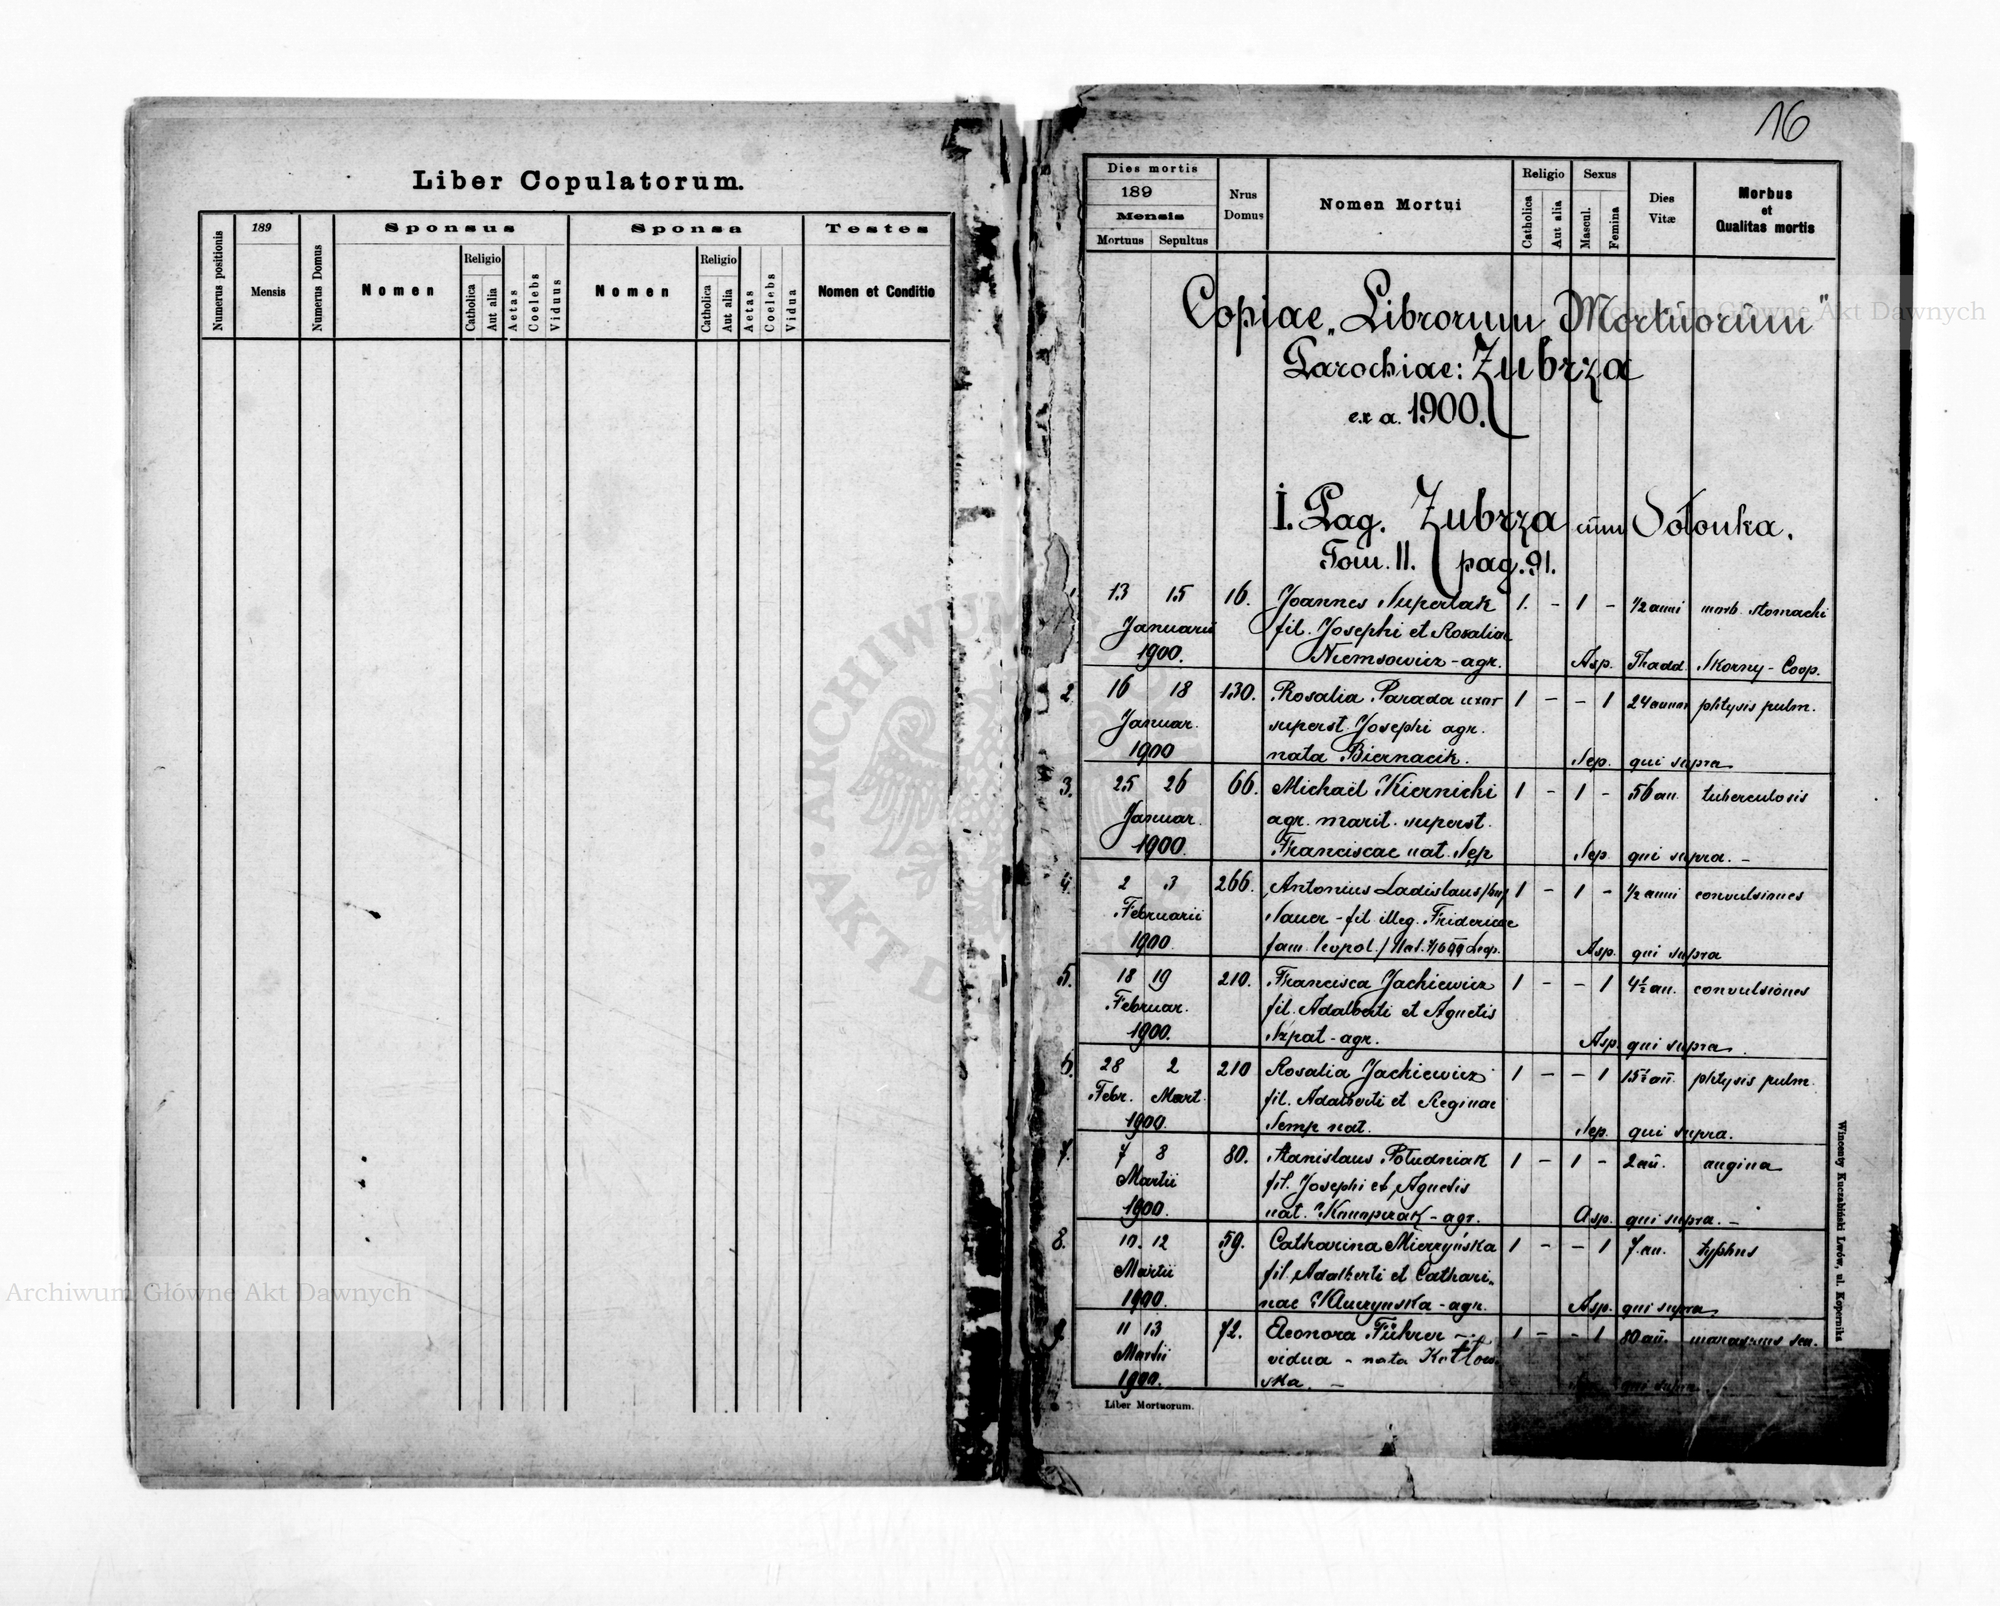 Liber Copulatorum.
Numerus positionis
189
Mensis
Numerus Domus
Sponsus
Nomen
Religio
Catholica
Aut alia
Aetas
Coelebs
Viduus
Sponsa
Nomen
Religio
Catholica
Aut alia
Aetas
Coelebs
Vidua
Testes
Nomen et Conditio
16
Dies mortis
189
Mensis
Mortuus Sepultus
Nrus Domus
Nomen Mortui
Religio
Catholica
Aut alia
Sexus
Mascul.
Femina
Dies Vitæ
Morbus
et
Qualitas mortis
Copiae „Librorum Mortuorum"
Parochiae: Zubrza
ex a. 1900.
I. Pag. Zubrza cum Sołonka.
Tom. II. pag. 91.
1. 13 15 16. Joannes 1. - 1 - 1/2 anni morb. stomachi
Januarii fil. Josephi et Rosaliae
1900. Niemsowicz - agr. Asp. Thadd. Skorny - Coop.
2 16 18 130. Rosalia Parada uxor 1 - - 1 24 annor phtysis pulm.
Januar. superst. Josephi agr.
1900 nata Biernacik. Sep. qui supra
3. 25 26 66. Michaël Kiernicki 1 - 1 - 56 an. tuberculosis
Januar. agr. marit. superst.
1900. Franciscae nat. Sęp Sep. qui supra. -
4. 2 3 266. Antonius Ladislaus 1 - 1 - 1/2 anni convulsiones
Februarii Sauer - fil. illeg. Fridericae
1900. fam. leopol. Asp. qui supra
5. 18 19 210. Francisca Jackiewicz 1 - - 1 4 1/2 an. convulsiones
Februar. fil. Adalberti et Agnetis
1900. Szpat - agr. Asp. qui supra.
6. 28 2 210 Rosalia Jackiewicz 1 - - 1 15 1/2 an̄. phtysis pulm.
Febr. Mart. fil. Adalberti et Reginae
1900. Semp nat. Sep. qui supra.
7. 7 8 80. Stanislaus Południak 1 - 1 - 2 an̄. angina
Martii fil. Josephi et Agnetis
1900. nat. - agr. Asp. qui supra. -
8. 10. 12 59. Catharina Mierzyńska 1 - - 1 7. an. typhus
Martii fil. Adalberti et Cathari-
1900. nae Kuczynska - agr. Asp. qui supra
9 11 13 72. Eleonora Führer - 1 - - 1 80 an̄. marasmus sen.
Martii vidua - nata Kotłow-
1900. ska. - qui supra
Liber Mortuorum.
Wincenty Kuczabiński Lwów, ul. Kopernika
Archiwum Główne Akt Dawnych
Archiwum Główne Akt Dawnych